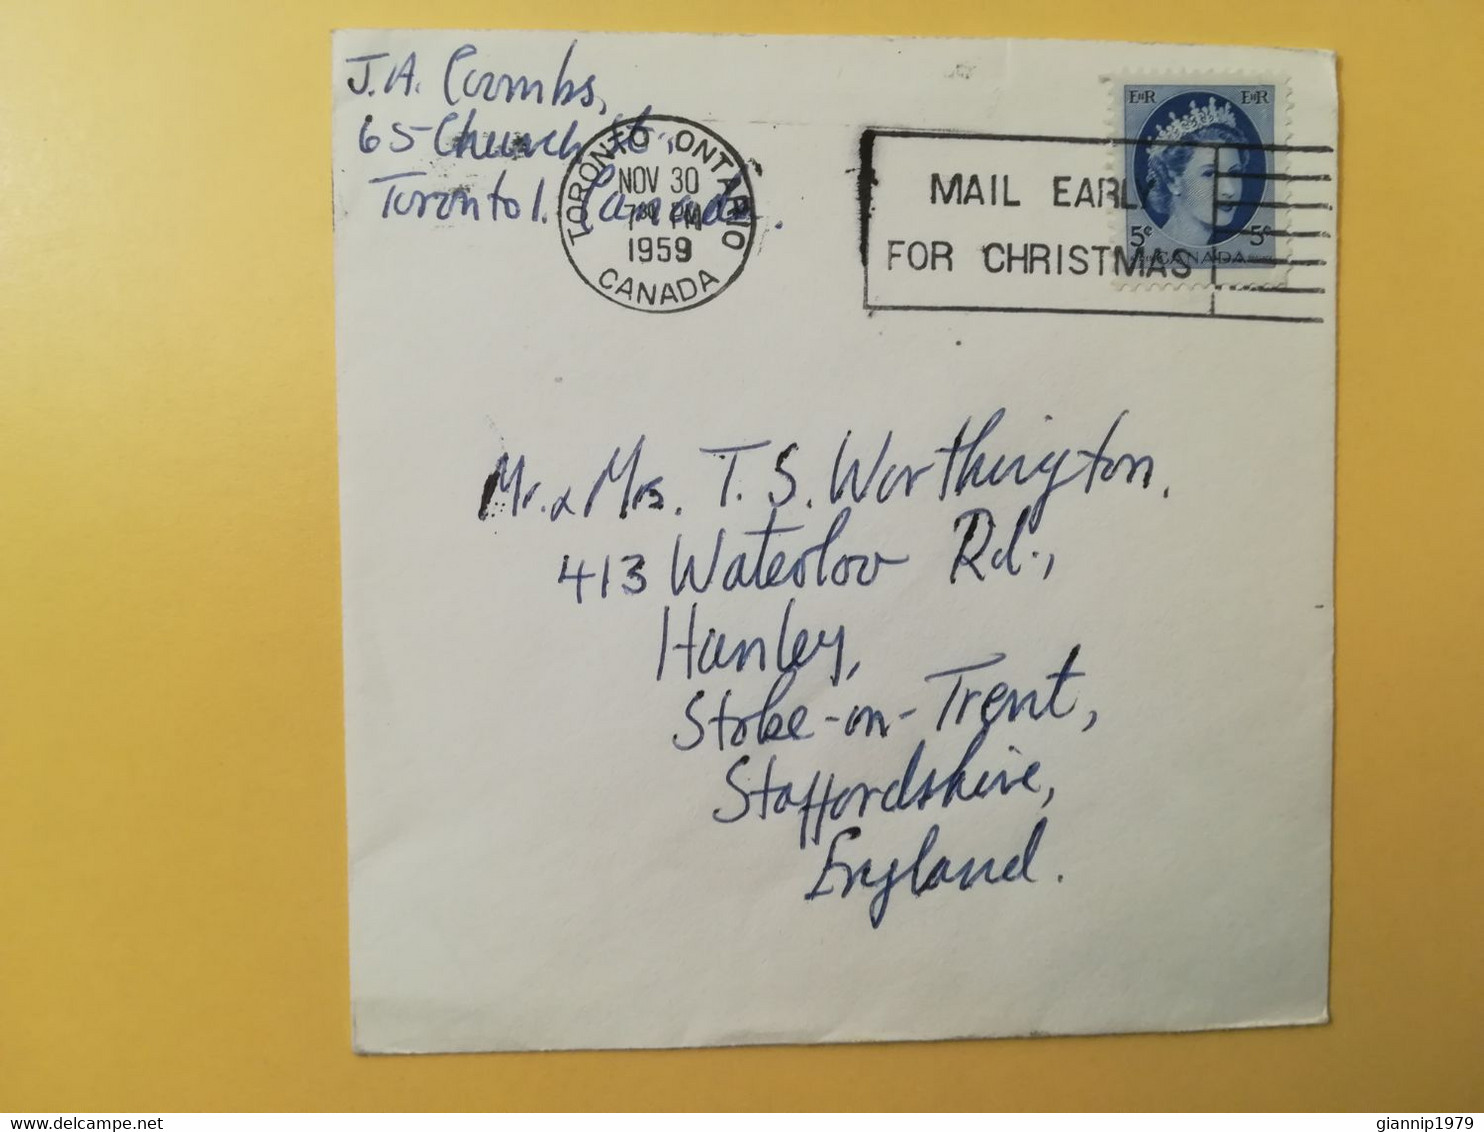 J.A. Coombs,
65 Church St.,
Toronto 1. Canada.
TORONTO ONTARIO
NOV 30
7 PM
1959
CANADA
MAIL EARLY
FOR CHRISTMAS
EIIR EIIR
5¢ 5¢
CANADA
Mr. & Mrs. T. S. Worthington.
413 Waterloo Rd.,
Hanley,
Stoke-on-Trent,
Staffordshire,
England.
giannip1979
delcampe.net